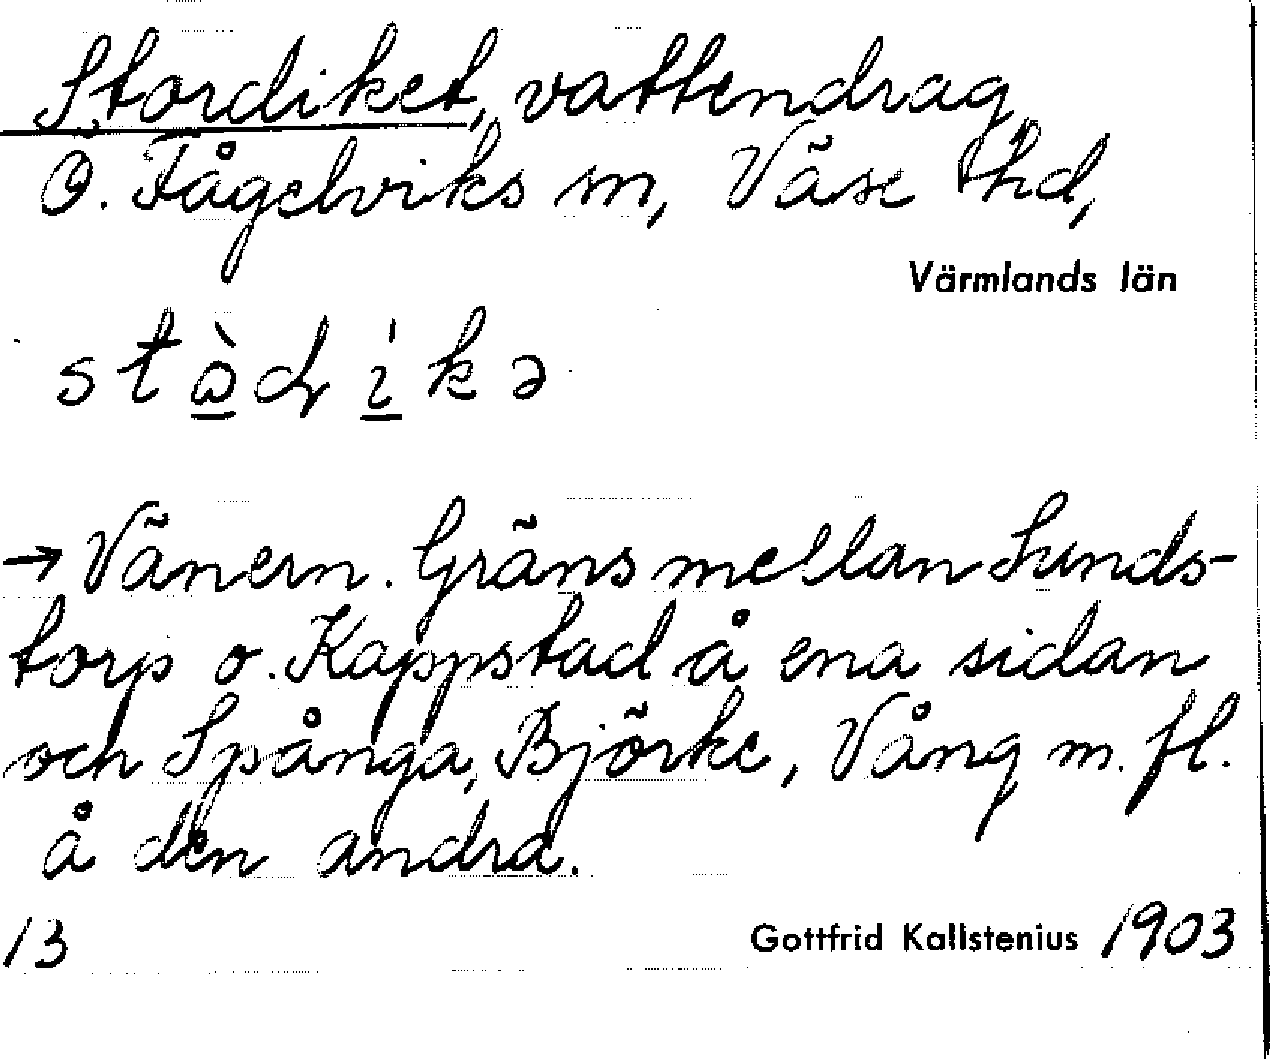 Stordiket, vattendrag,
Ö. Fågelviks sn, Väse hd,
Värmlands län
→ Vänern. Gräns mellan Sunds-
torp o. Kappstad å ena sidan
och Spånga, Björke, Vång m. fl.
å den andra.
13 Gottfrid Kallstenius 1903